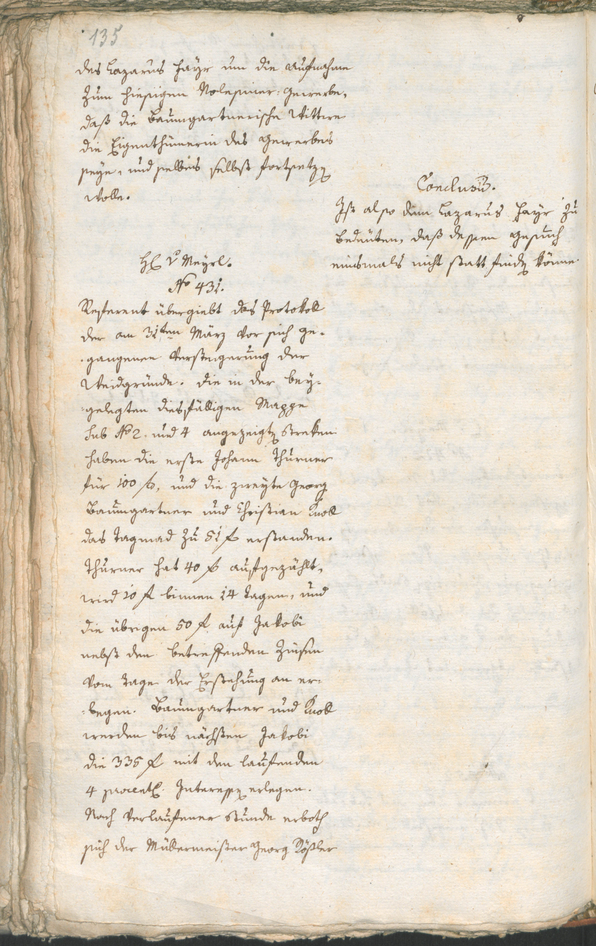 135
des Lazarus Hayr um die Aufnahme
zum hiesigen Gewerbe,
daß die Baumgartnerische Wittwe
die Eigenthümerin des Gewerbes
seye, und selbes selbst fortsetzen
wolle.
Conclusum.
Ist also dem Lazarus Hayr zu
bedeuten, daß dessen Gesuch
einsmals nicht statt finden könne.
H v Mayrl.
No 431.
Referent übergiebt das Protokoll
der am 31ten März vor sich ge-
gangenen Versteigerung der
Weidgründe. Die in der bey-
gelegten diesfälligen Mappe
sub No 2. und 4 angezeigten Strecken
haben die erste Johann Thurner
für 100 f, und die zweyte Georg
Baumgartner und Christian Knoll
das Tagmad zu 51 f erstanden.
Thurner hat 40 f aufgezählt,
wird 10 f binnen 14 Tagen, und
die übrigen 50 f auf Jakobi
nebst den betreffenden Zinsen
vom Tage der Erstehung an er-
legen. Baumgartner und Knoll
werden bis nächsten Jakobi
die 335 f mit den laufenden
4 procent Interessen erlegen.
Nach verlaufener Stunde erboth
sich der Müllermeister Georg Rößler